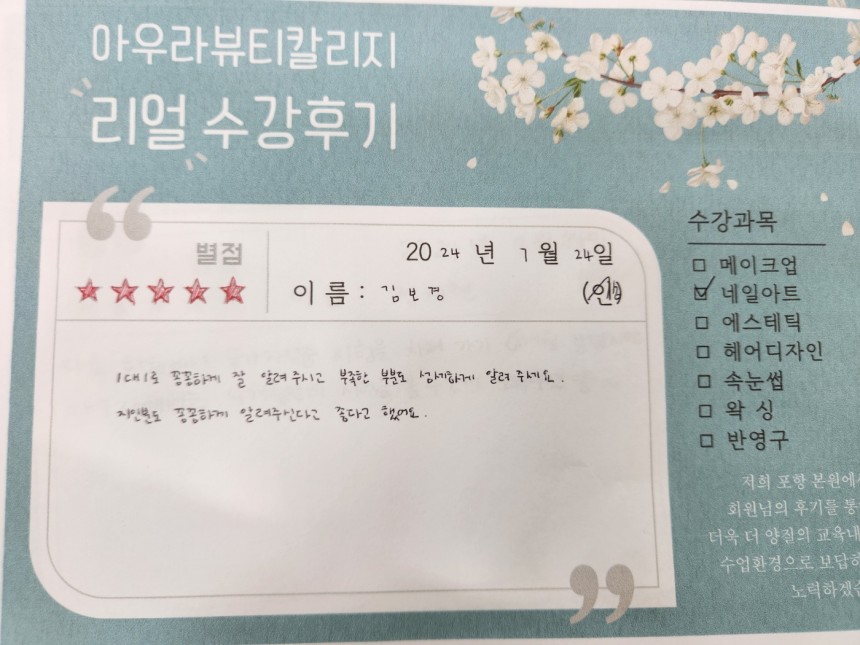 아우라뷰티칼리지
리얼 수강후기
별점
2024년 7월 24일
이름 : 김보경 (인)
1대1로 꼼꼼하게 잘 알려주시고 부족한 부분도 상기하게 알려주세요.
지인분도 꼼꼼하게 알려주신다고 좋다고 했어요.
수강과목
메이크업
네일아트
에스테틱
헤어디자인
속눈썹
왁싱
반영구
저희 포항 본원에서
회원님의 후기를 통
더욱 더 양질의 교육내
수업환경으로 보답하
노력하겠습